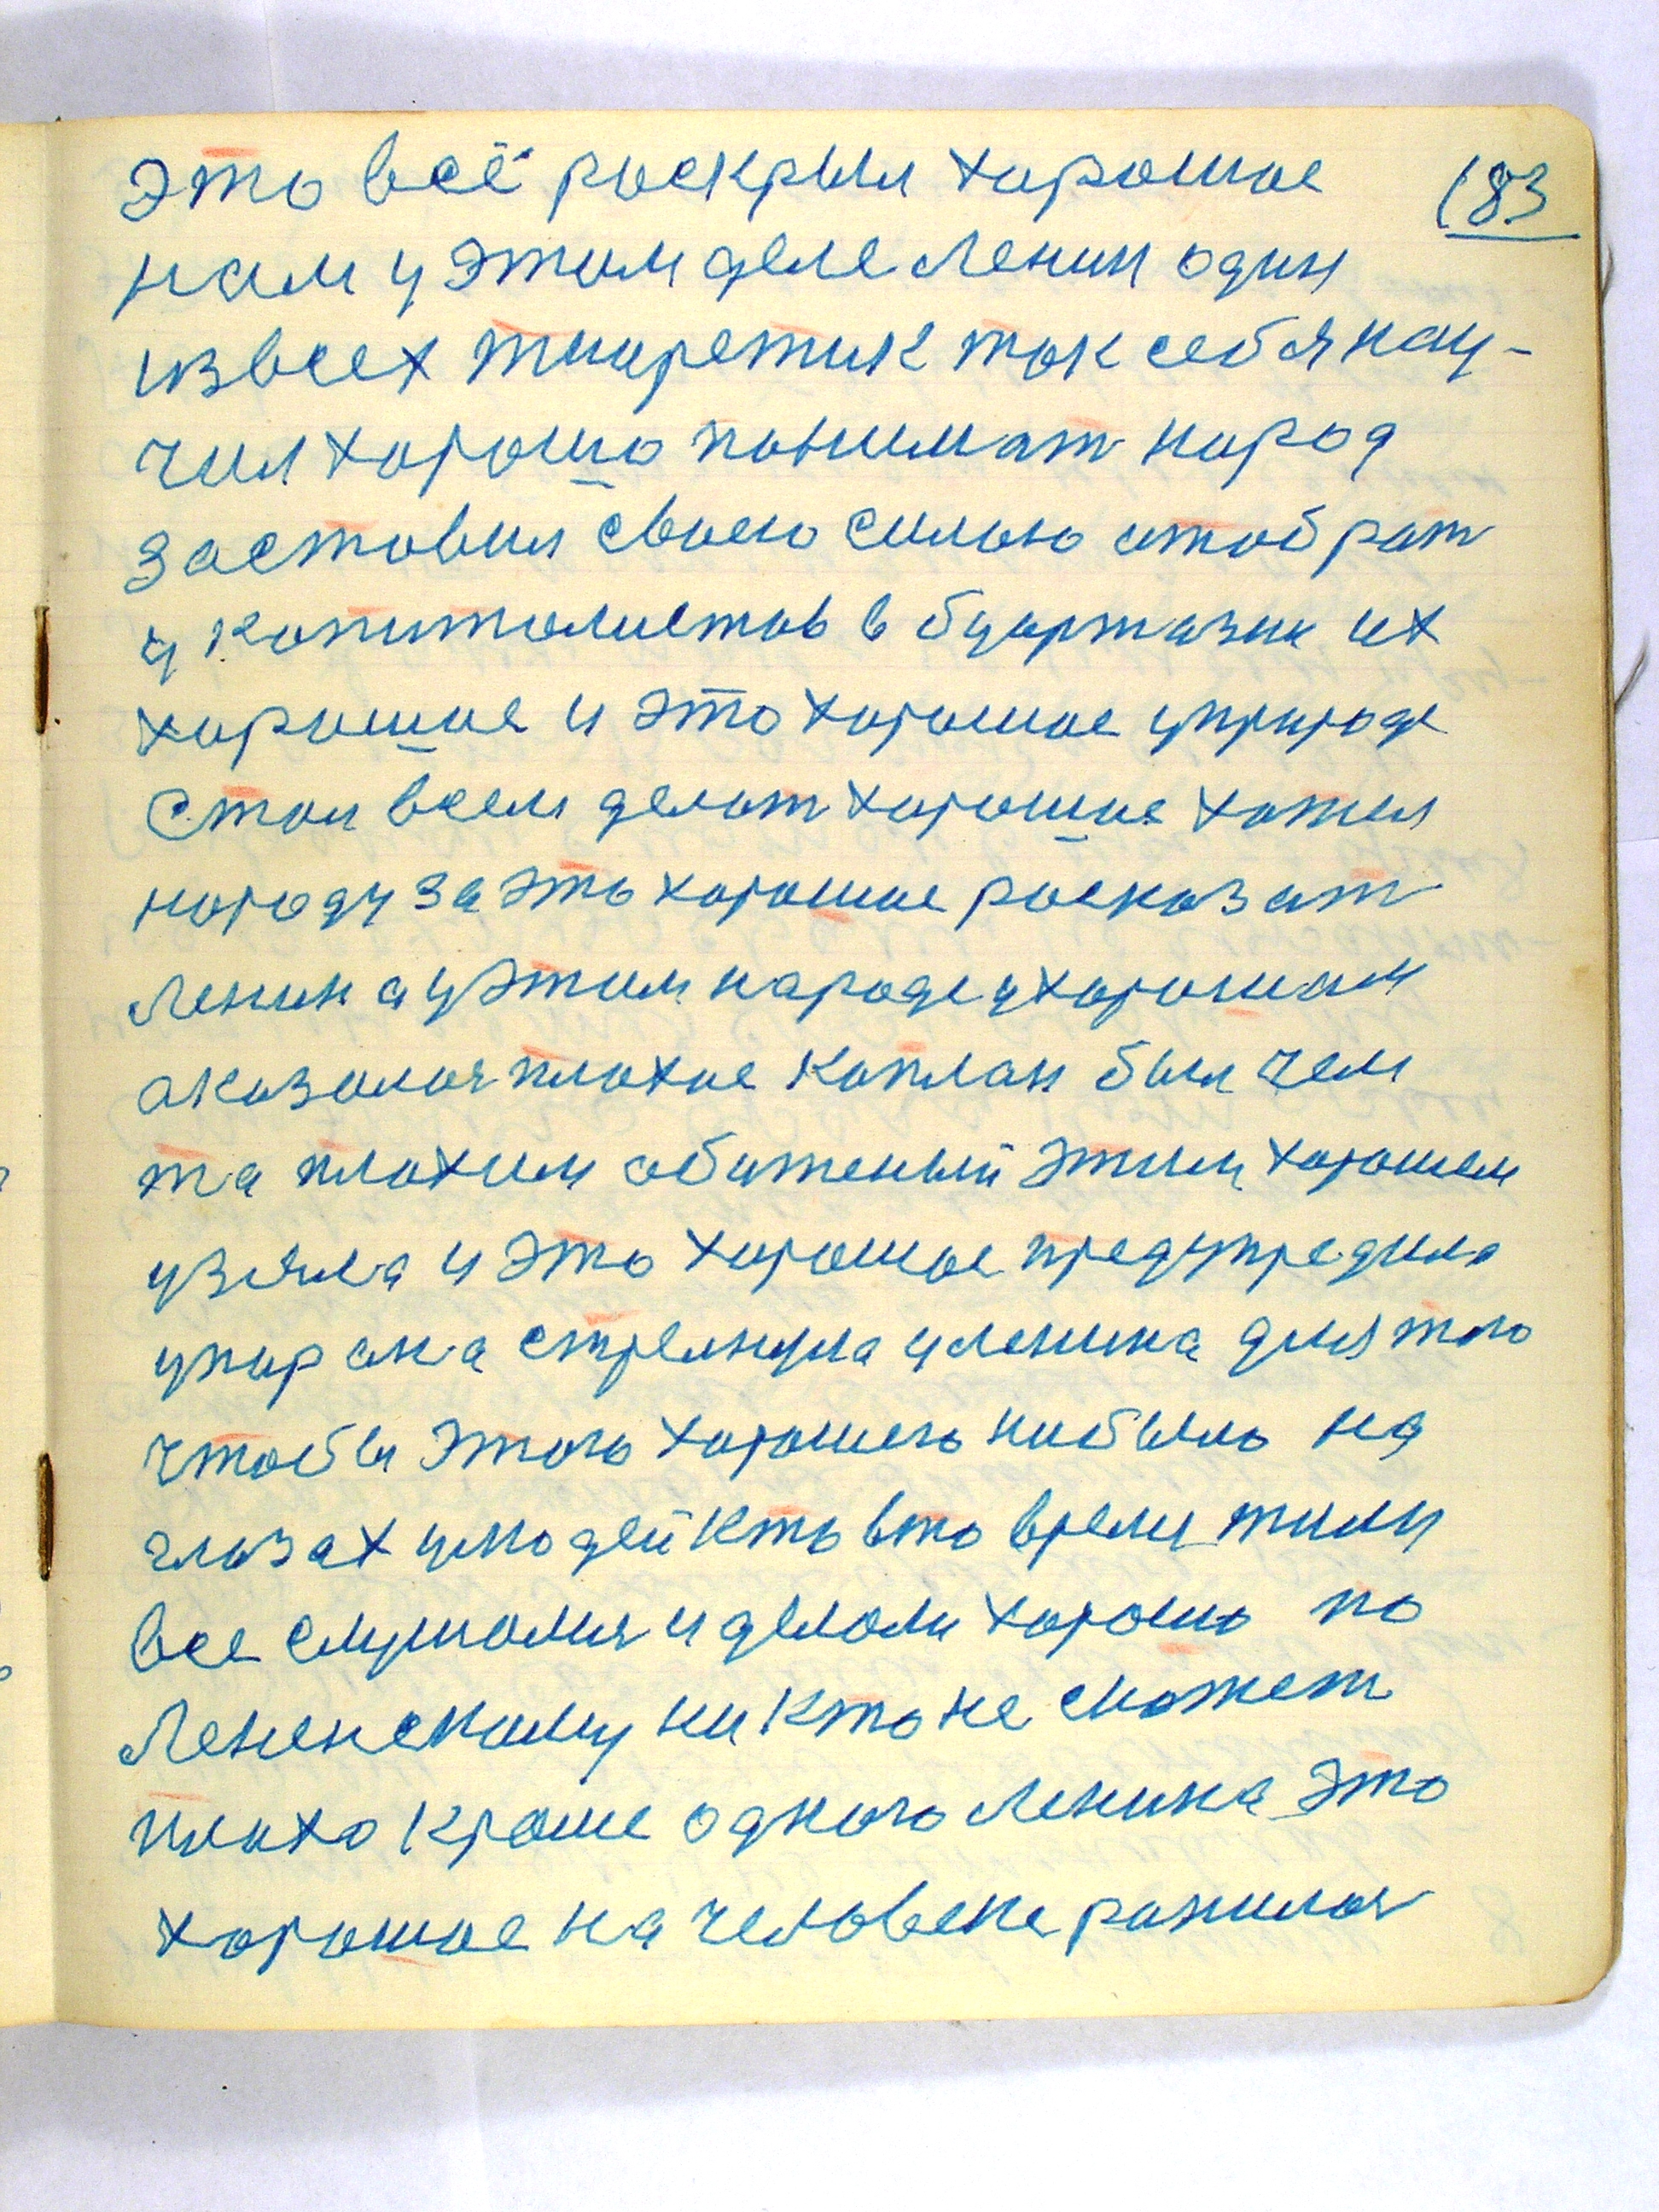 это всё роскрыл хорошое 183
нам у этим деле Ленин один
из всех тииретик так себя нау-
чил хорошо понимат народ
заставил своею силою атобрат
у копиталистов в буаржазии их
хорошое и это хорошое уприроде
стал всем делат хорошое хател
народу за это хорошое росказат
Ленин а у этим народе у хорошам
аказалоя плохое Каплан был чем
та плохим абиженый этим хорошем
узяла и это хорошое предупредила
упир ана стрелнула уленина для того
чтобы этого хорошего нибыло на
глазах улюдей кто вто время жили
все слушалия и делали хорошо по
Лененскаму ни кто не сможет
плохо кроме одного Ленина это
хорошое на человеке ранилоя